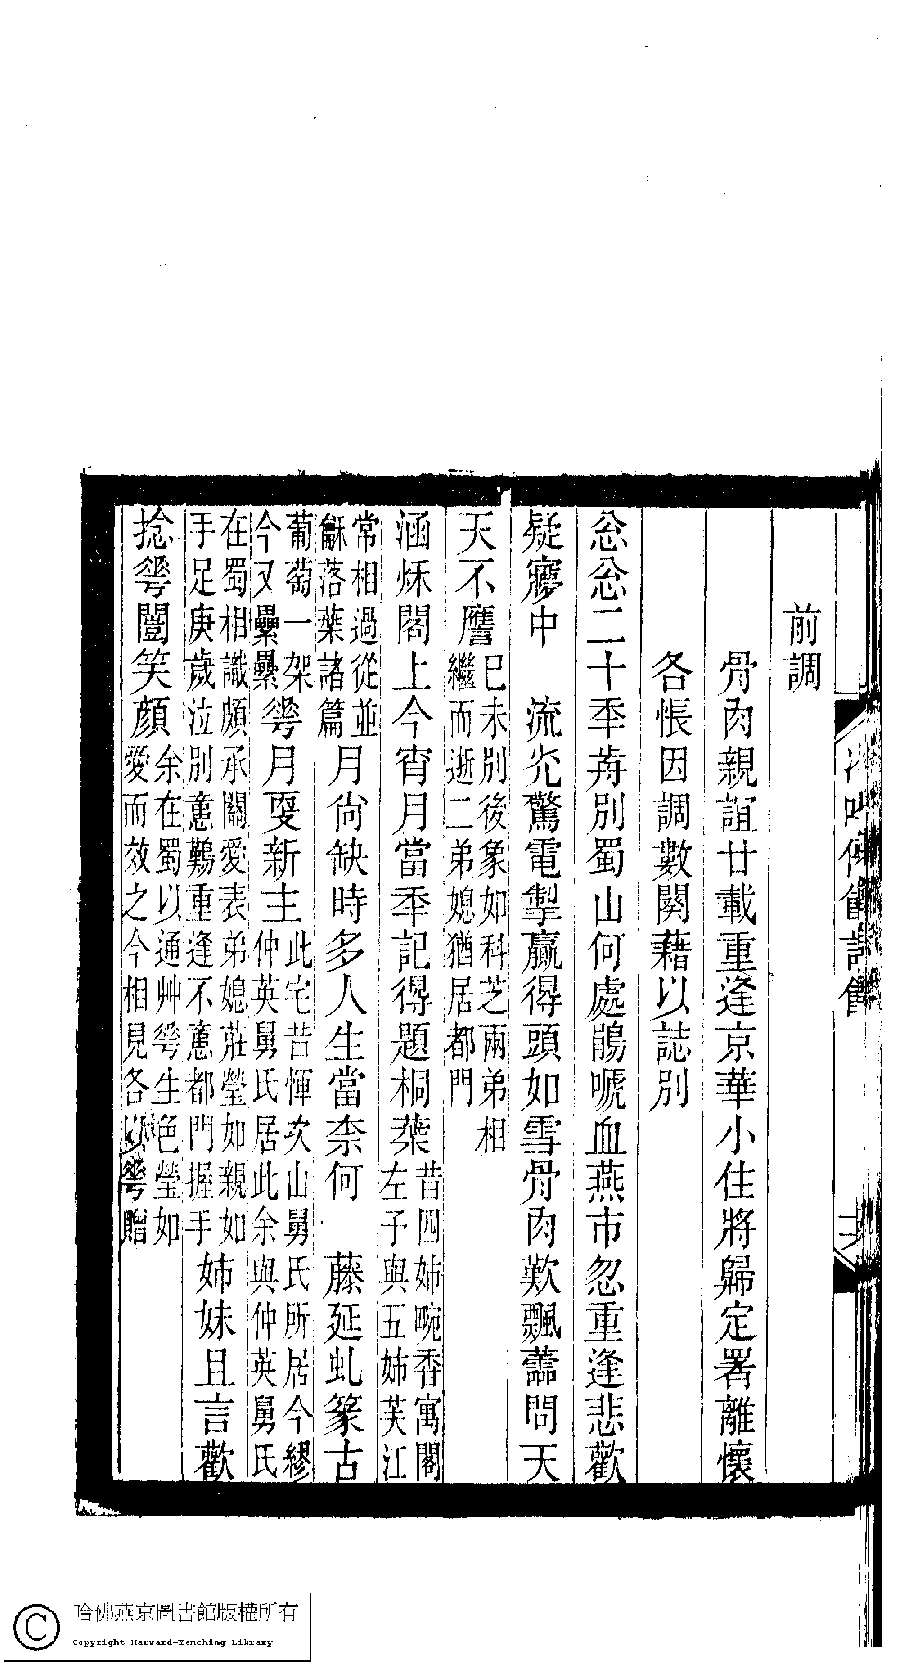 前調
骨肉親誼廿載重逢京華小住將歸定署離懷
各悵因調數闋藉以誌別
忩忩二十秊歬別蜀山何處鵑嗁血燕市忽重逢悲歡
疑㝱中　流光驚電掣贏得頭如雪骨肉歎飄蕭問天
天不譍
已未別後象如科芝兩弟相
繼而逝二弟媳猶居都門
涵秌閣上今宵月當秊記得題桐葉
昔四姊畹香寓閣
左予與五姊芙江
常相過從並
龢落葉諸篇
月尙缺時多人生當柰何　藤延虬篆古
葡萄一架
今又纍纍
雩月更新主
此宅昔惲次山舅氏所居今繆
仲英舅氏居此余與仲英舅氏
在蜀相識頗承關愛表弟媳莊瑩如親如
手足庚歲泣別意難重逢不意都門握手
姉妹且言歡
捻雩闓笑顔
余在蜀以通艸雩生色瑩如
愛而效之今相見各以雩贈
哈佛燕京圖書館版權所有
Copyright Harvard-Yenching Library